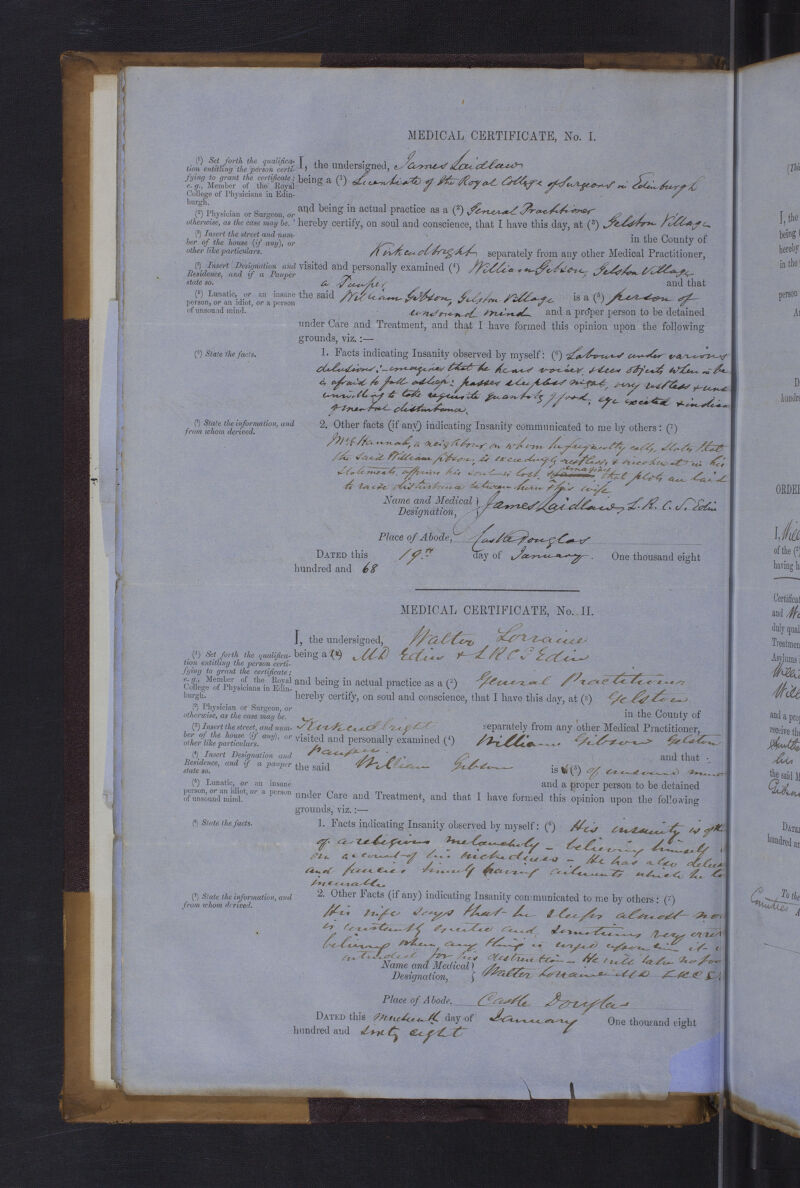 MEDICAL CERTIFICATE, No. I.
(¹) Set forth the qualifica-
tion entitling the person certi-
fying to grant the certificate;
e.g., Member of the Royal
College of Physicians in Edin-
burgh.
(²) Physician or Surgeon, or
otherwise, as the case may be.
(³) Insert the street and num-
ber of the house (if any), or
other like particulars.
(⁴) Insert Designation and
Residence, and if a Pauper
state so.
(⁵) Lunatic, or an insane
person, or an idiot, or a person
of unsound mind.
I, the undersigned, James Laidlaw
being a (¹) Licentiate of the Royal College of Surgeons in Edinburgh
and being in actual practice as a (²) General Practitioner
hereby certify, on soul and conscience, that I have this day, at (³) Gelston Village
in the County of
Kirkcudbright separately from any other Medical Practitioner,
visited and personally examined (⁴) William Gibson, Gelston Village
a Pauper and that
the said William Gibson, Gelston Village is a (⁵) person of
unsound mind and a proper person to be detained
under Care and Treatment, and that I have formed this opinion upon the following
grounds, viz.:—
(⁶) State the facts.
1. Facts indicating Insanity observed by myself: (⁶) Labours under various
delusions;- imagines that he hears voices & sees objects when in be
is afraid to fall asleep: passes sleepless night, very restless &
unwilling to take requisite quantity of food, eye excited &
of mental disturbance.
(⁷) State the information, and
from whom derived.
2. Other facts (if any) indicating Insanity communicated to me by others: (⁷)
Hannah, a neighbour, on whom he frequently calls, states that
the said William Gibson, is exceedingly restless, & incoherent in his
statements, affirms his soul is lost, & imagines that plots are laid
to raise disturbance between him & his wife.
Name and Medical
Designation, } James Laidlaw, L.R.C.S. Edin
Place of Abode, Castle Douglas
DATED this 19th day of January. One thousand eight
hundred and 68
MEDICAL CERTIFICATE, No. II.
(¹) Set forth the qualifica-
tion entitling the person certi-
fying to grant the certificate;
e.g., Member of the Royal
College of Physicians in Edin-
burgh.
(²) Physician or Surgeon, or
otherwise, as the case may be.
(³) Insert the street, and num-
ber of the house (if any), or
other like particulars.
(⁴) Insert Designation and
Residence, and if a pauper
state so.
(⁵) Lunatic, or an insane
person, or an idiot, or a person
of unsound mind.
I, the undersigned, Walter Lorraine
being a (¹) MD Edin & LRCS Edin
and being in actual practice as a (²) General Practitioner
hereby certify, on soul and conscience, that I have this day, at (³) Gelston
in the County of
Kirkcudbright separately from any other Medical Practitioner,
visited and personally examined (⁴) William Gibson Gelston
Pauper and that
the said William Gibson is (⁵) of unsound mind
and a proper person to be detained
under Care and Treatment, and that I have formed this opinion upon the following
grounds, viz.:—
(⁶) State the facts.
1. Facts indicating Insanity observed by myself: (⁶) His insanity is of the
of a religious melancholy - believing himself
on account of his wickedness - He has also delus
and fancies himself having ailments which he
incurable
(⁷) State the information, and
from whom derived.
2. Other Facts (if any) indicating Insanity communicated to me by others: (⁷)
His wife says that he sleeps almost
is constantly excited and sometimes very
believing when any thing is urged upon him it
intended for his destruction - He will take no foo
Name and Medical
Designation, } Walter Lorraine MD LRCS
Place of Abode, Castle Douglas
DATED this nineteenth day of January One thousand eight
hundred and sixty eight
I, the
being
hereby
in the
person
hundre
ORDE
I, Will
of the (
having h
Certificat
and
duly qual
Treatmen
Asylums
Will
and a pro
receive th
his
the said
DATE
hundred an
To the